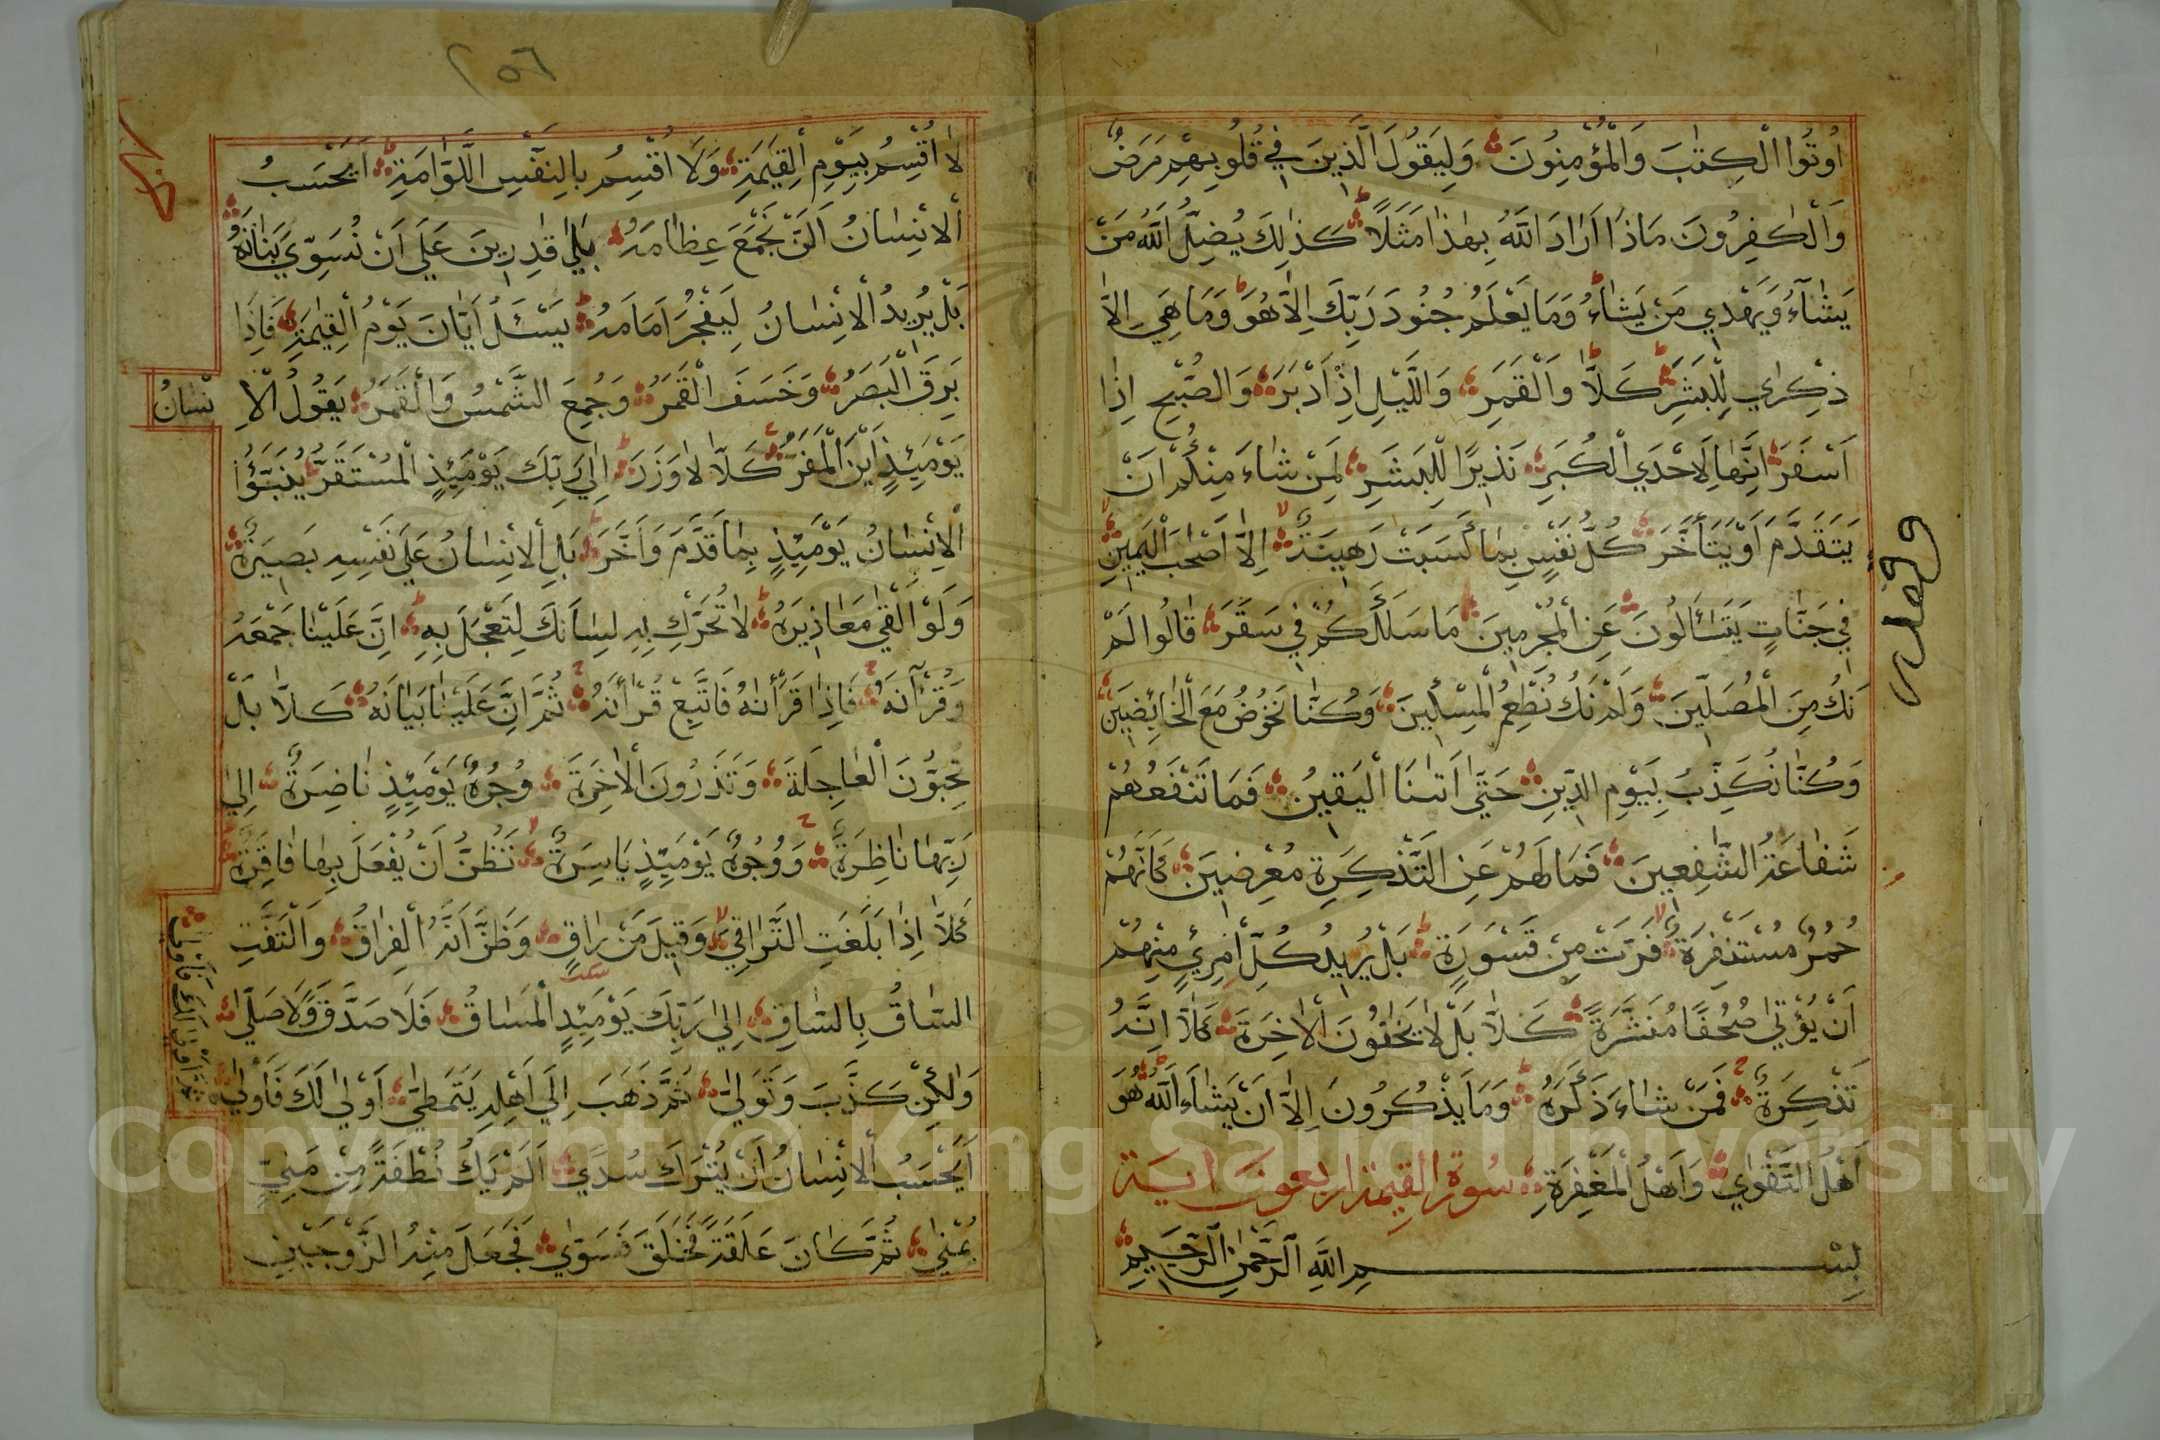 اُوتُوا الْكِتٰبَ وَالْمُؤْمِنُونَ وَلِيَقُولَ الَّذِينَ فِي قُلُوبِهِمْ مَرَضٌ
وَالْكٰفِرُونَ مَاذَا اَرَادَ اللّٰهُ بِهٰذَا مَثَلًا كَذٰلِكَ يُضِلُّ اللّٰهُ مَنْ
يَشَآءُ وَيَهْدِي مَنْ يَشَآءُ وَمَا يَعْلَمُ جُنُودَ رَبِّكَ اِلَّا هُوَ وَمَا هِيَ اِلَّا
ذِكْرٰي لِلْبَشَرِ كَلَّا وَالْقَمَرِ وَاللَّيْلِ اِذْ اَدْبَرَ وَالصُّبْحِ اِذَا
اَسْفَرَ اِنَّهَا لَاِحْدَي الْكُبَرِ نَذِيرًا لِلْبَشَرِ لِمَنْ شَاءَ مِنْكُمْ اَنْ
يَتَقَدَّمَ اَوْ يَتَأَخَّرَ كُلُّ نَفْسٍ بِمَا كَسَبَتْ رَهِينَةٌ اِلَّا اَصْحٰبَ الْيَمِينِ
فِي جَنَّاتٍ يَتَسَائَلُونَ عَنِ الْمُجْرِمِينَ مَا سَلَكَكُمْ فِي سَقَرَ قَالُوا لَمْ
نَكُ مِنَ الْمُصَلِّينَ وَلَمْ نَكُ نُطْعِمُ الْمِسْكِينَ وَكُنَّا نَخُوضُ مَعَ الْخَائِضِينَ
وَكُنَّا نُكَذِّبُ بِيَوْمِ الدِّينِ حَتّٰي اَتٰنَا الْيَقِينُ فَمَا تَنْفَعُهُمْ
شَفَاعَةُ الشَّافِعِينَ فَمَا لَهُمْ عَنِ التَّذْكِرَةِ مُعْرِضِينَ كَاَنَّهُمْ
حُمُرٌ مُسْتَنْفِرَةٌ فَرَّتْ مِنْ قَسْوَرَةٍ بَلْ يُرِيدُ كُلُّ امْرِئٍ مِنْهُمْ
اَنْ يُؤْتٰي صُحُفًا مُنَشَّرَةً كَلَّا بَلْ لَا يَخَافُونَ الْاٰخِرَةَ كَلَّا اِنَّهُ
تَذْكِرَةٌ فَمَنْ شَاءَ ذَكَرَهُ وَمَا يَذْكُرُونَ اِلَّا اَنْ يَشَاءَ اللّٰهُ هُوَ
اَهْلُ التَّقْوٰي وَاَهْلُ الْمَغْفِرَةِ سُورة القيمة اربعون اية
بِسْمِ اللّٰهِ الرَّحْمٰنِ الرَّحِيمِ
٢٥٦
لَا اُقْسِمُ بِيَوْمِ الْقِيٰمَةِ وَلَا اُقْسِمُ بِالنَّفْسِ اللَّوَّامَةِ اَيَحْسَبُ
الْاِنْسَانُ اَلَّنْ نَجْمَعَ عِظَامَهُ بَلٰي قَادِرِينَ عَلٰي اَنْ نُسَوِّيَ بَنَانَهُ
بَلْ يُرِيدُ الْاِنْسَانُ لِيَفْجُرَ اَمَامَهُ يَسْئَلُ اَيَّانَ يَوْمُ الْقِيٰمَةِ فَاِذَا
بَرِقَ الْبَصَرُ وَخَسَفَ الْقَمَرُ وَجُمِعَ الشَّمْسُ وَالْقَمَرُ يَقُولُ الْاِنْسَانُ
يَوْمَئِذٍ اَيْنَ الْمَفَرُّ كَلَّا لَا وَزَرَ اِلٰي رَبِّكَ يَوْمَئِذٍ الْمُسْتَقَرُّ يُنَبَّؤُا
الْاِنْسَانُ يَوْمَئِذٍ بِمَا قَدَّمَ وَاَخَّرَ بَلِ الْاِنْسَانُ عَلٰي نَفْسِهِ بَصِيرَةٌ
وَلَوْ اَلْقٰي مَعَاذِيرَهُ لَا تُحَرِّكْ بِهِ لِسَانَكَ لِتَعْجَلَ بِهِ اِنَّ عَلَيْنَا جَمْعَهُ
وَقُرْاٰنَهُ فَاِذَا قَرَأْنَاهُ فَاتَّبِعْ قُرْاٰنَهُ ثُمَّ اِنَّ عَلَيْنَا بَيَانَهُ كَلَّا بَلْ
تُحِبُّونَ الْعَاجِلَةَ وَتَذَرُونَ الْاٰخِرَةَ وُجُوهٌ يَوْمَئِذٍ نَاضِرَةٌ اِلٰي
رَبِّهَا نَاظِرَةٌ وَوُجُوهٌ يَوْمَئِذٍ بَاسِرَةٌ تَظُنُّ اَنْ يُفْعَلَ بِهَا فَاقِرَةٌ
كَلَّا اِذَا بَلَغَتِ التَّرَاقِيَ وَقِيلَ مَنْ رَاقٍ وَظَنَّ اَنَّهُ الْفِرَاقُ وَالْتَفَّتِ
سكت
السَّاقُ بِالسَّاقِ اِلٰي رَبِّكَ يَوْمَئِذٍ الْمَسَاقُ فَلَا صَدَّقَ وَلَا صَلّٰي
وَلٰكِنْ كَذَّبَ وَتَوَلّٰي ثُمَّ ذَهَبَ اِلٰي اَهْلِهِ يَتَمَطّٰي اَوْلٰي لَكَ فَاَوْلٰي
ثُمَّ اَوْلٰي لَكَ فَاَوْلٰي
اَيَحْسَبُ الْاِنْسَانُ اَنْ يُتْرَكَ سُدًي اَلَمْ يَكُ نُطْفَةً مِنْ مَنِيٍّ
يُمْنٰي ثُمَّ كَانَ عَلَقَةً فَخَلَقَ فَسَوّٰي فَجَعَلَ مِنْهُ الزَّوْجَيْنِ
Copyright © King Saud University